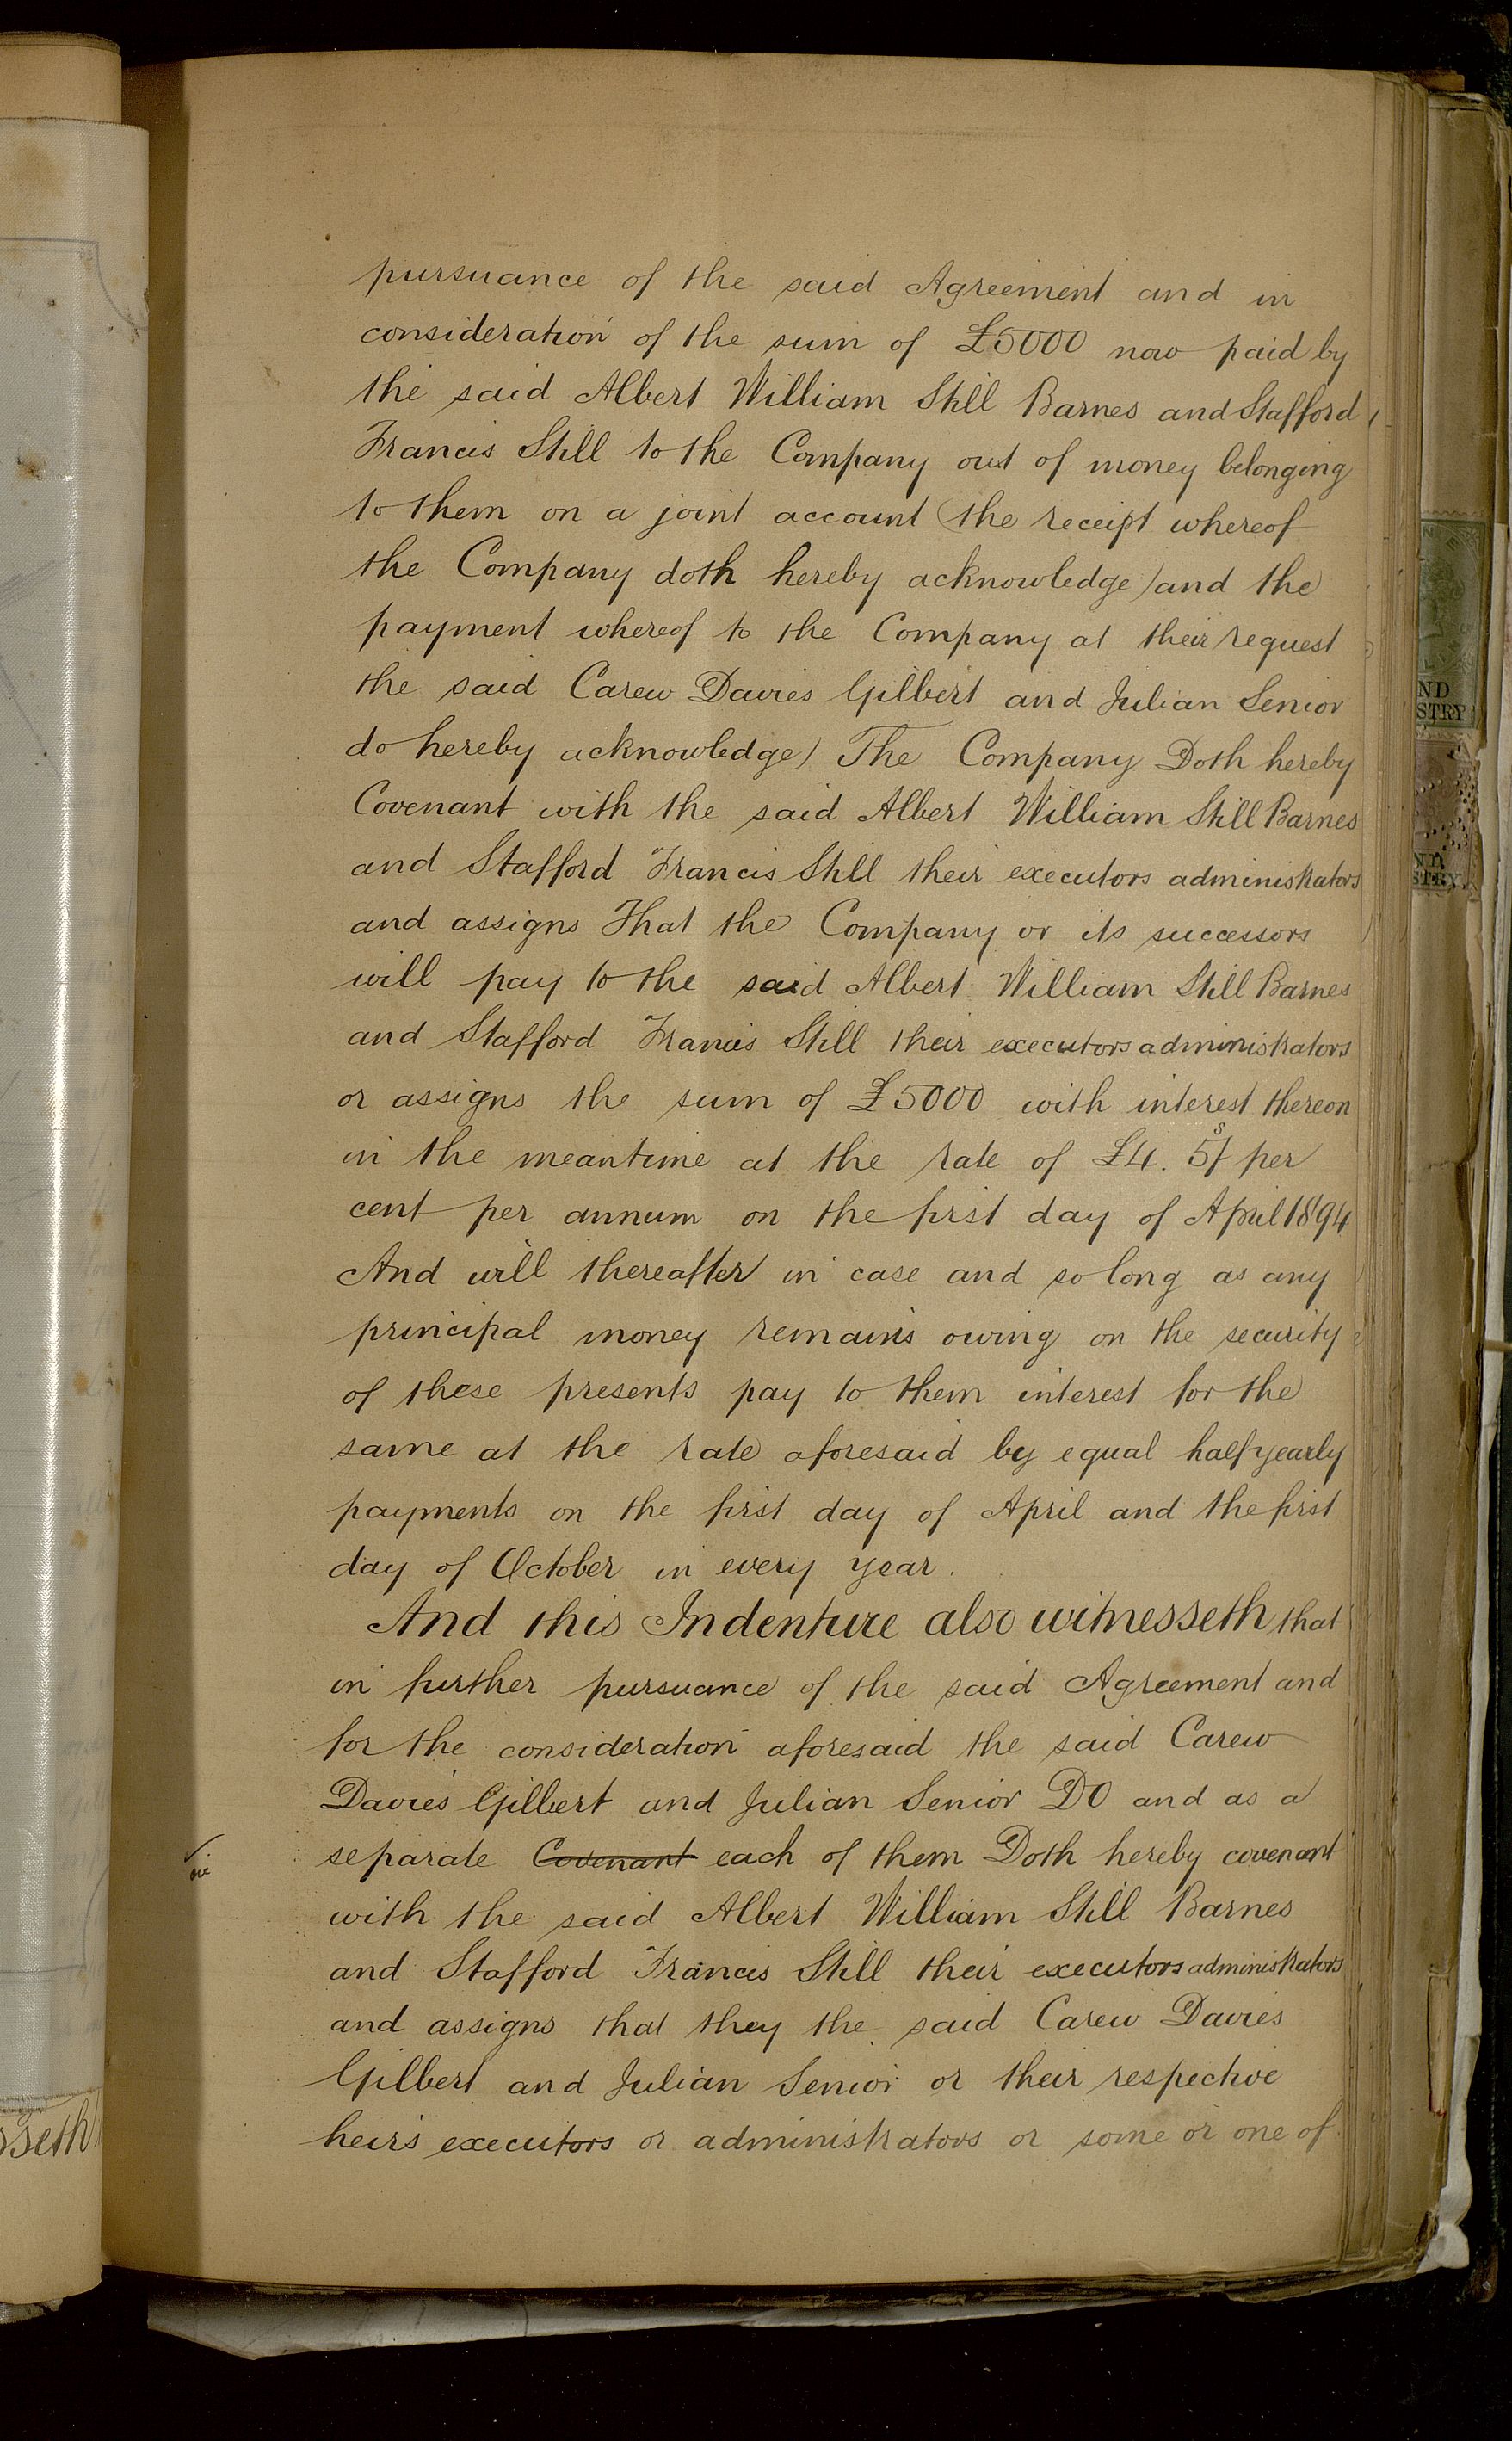 pursuance of the said Agreement and in
consideration of the sum of £5000 now paid by
the said Albert William Still Barnes and Stafford
Francis Still to the Company out of money belonging
to them on a joint account (the receipt whereof
the Company doth hereby acknowledge) and the
payment whereof to the Company at their request
the said Carew Davies Gilbert and Julian Senior
do hereby acknowledge) The Company Doth hereby
Covenant with the said Albert William Still Barnes
and Stafford Francis Still their executors administrators
and assigns That the Company or its successors
will pay to the said Albert William Still Barnes
and Stafford Francis Still their executors administrators
or assigns the sum of £5000 with interest thereon
in the meantime at the rate of £4. 5s/ per
cent per annum on the first day of April 1894
And will thereafter in case and so long as any
principal money remains owing on the security
of these presents pay to them interest for the
same at the rate aforesaid by equal half yearly
payments on the first day of April and the first
day of October in every year.
And this Indenture also witnesseth that
in further pursuance of the said Agreement and
for the consideration aforesaid the said Carew
Davies Gilbert and Julian Senior DO and as a
separate Covenant each of them Doth hereby covenant
with the said Albert William Still Barnes
and Stafford Francis Still their executors administrators
and assigns that they the said Carew Davies
Gilbert and Julian Senior or their respective
heirs executors or administrators or some or one of
sseth
ND
STRY
ND
STRY